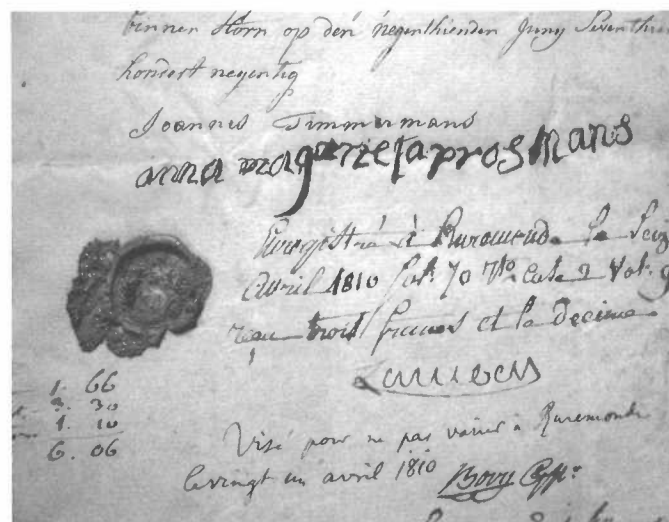 binnen Horn op den negenthienden Juny Seventhien
hondert negentig
Joannis Timmermans
anna magrieta prosmans
Enregistré à Ruremonde le Seiz
Avril 1810 fol. 70 Vo. case 2 Vol. 9
reçu trois francs et le decime
1. 66
3. 30
1. 10
6. 06
Visé pour ne pas varier à Ruremonde
le vingt un avril 1810